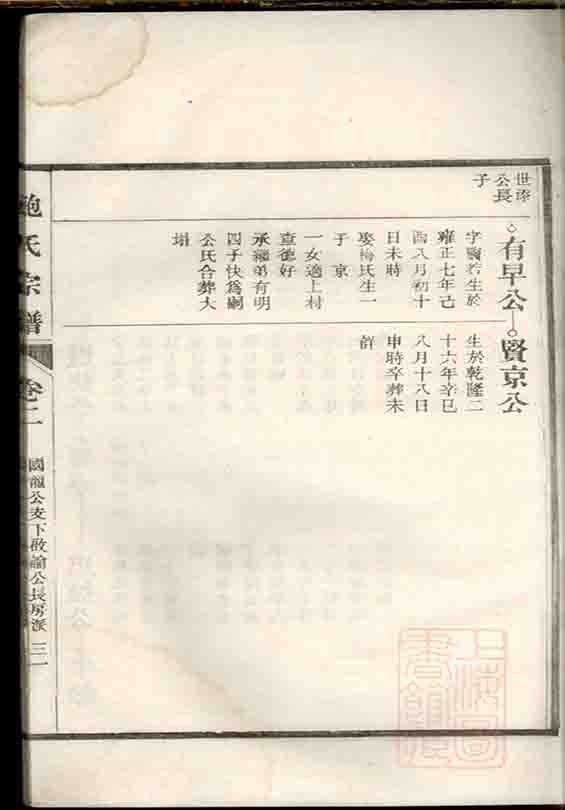 世琢
公長
子
有早公
字賢若生於
雍正七年己
酉八月初十
日未時
娶梅氏生一
子 京
一女適上村
查德好
承繼弟有明
四子快為嗣
公氏合葬大
塘
賢京公
生於乾隆二
十六年辛巳
八月十八日
申時卒葬未
詳
鮑氏宗譜
卷二
國龍公支下啟諭公長房派
三一
上海圖
書館藏